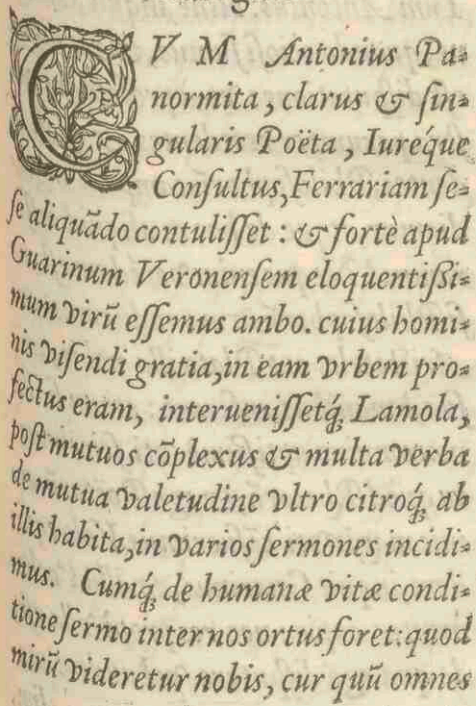 CVM Antonius Pa⸗
normita, clarus & ſin⸗
gularis Poëta, Iuréque
Conſultus, Ferrariam ſe⸗
ſe aliquãdo contuliſſet : & fortè apud
Guarinum Veronenſem eloquentißi⸗
mum virũ eſſemus ambo. cuius homi⸗
nis viſendi gratia, in eam vrbem pro⸗
fectus eram, interueniſſetq́; Lamola,
poſt mutuos cõplexus & multa verba
de mutua valetudine vltro citroq́; ab
illis habita, in varios ſermones incidi⸗
mus. Cumq́; de humanæ vitæ condi⸗
tione ſermo inter nos ortus foret: quod
mirũ videretur nobis, cur quũ omnes